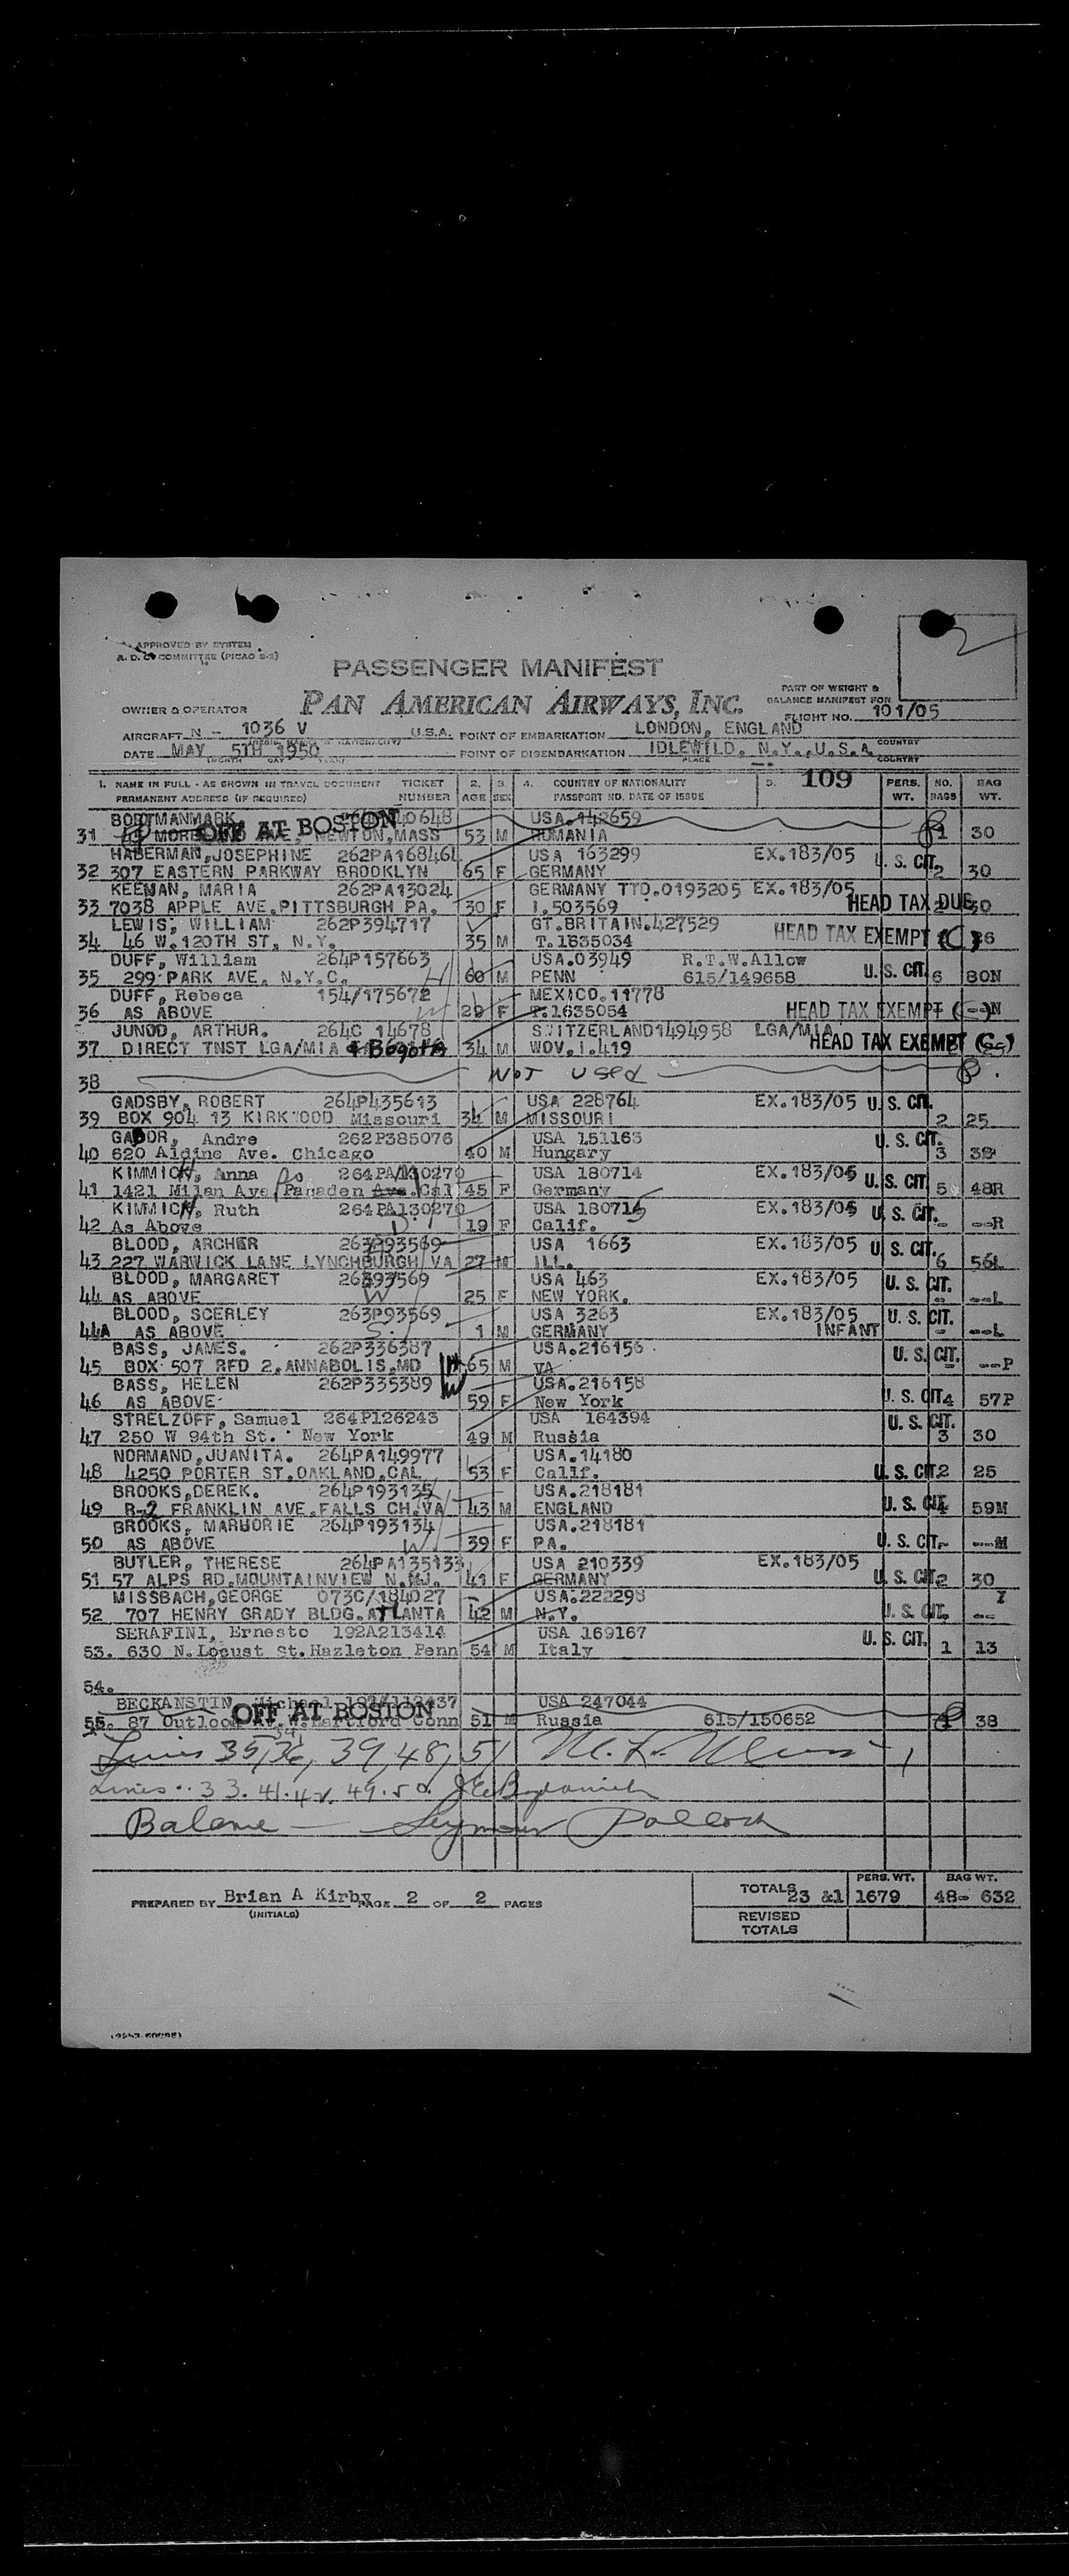 APPROVED BY SYSTEM
A. D. C. COMMITTEE (PICAO 2-2)
PASSENGER MANIFEST
PAN AMERICAN AIRWAYS, INC.
PART OF WEIGHT &
BALANCE MANIFEST FOR
FLIGHT NO. 101/05
OWNER & OPERATOR
AIRCRAFT N - 1036 V U.S.A. POINT OF EMBARKATION LONDON, ENGLAND
COUNTRY
DATE MAY 5TH 1950 POINT OF DISEMBARKATION IDLEWILD, N.Y.,U.S.A.
PLACE COUNTRY
1. NAME IN FULL - AS SHOWN IN TRAVEL DOCUMENT TICKET 2. 3. 4. COUNTRY OF NATIONALITY 5. 109 PERS. NO. BAG
PERMANENT ADDRESS (IF REQUIRED) NUMBER AGE SEX PASSPORT NO. DATE OF ISSUE WT. BAGS WT.
BORTMANMARK 40648 USA.142659
31 OFF AT BOSTON NEWTON,MASS 53 M RUMANIA 1 30
HABERMAN,JOSEPHINE 262PA168464 USA 163299 EX.183/05 U. S. CIT.
32 307 EASTERN PARKWAY BROOKLYN 65 F GERMANY 2 30
KEENAN, MARIA 262PA13024 GERMANY TTD.0193205 EX.183/05
33 7038 APPLE AVE.PITTSBURGH PA. 30 F I.503569 HEAD TAX DUE 30
LEWIS, WILLIAM 262P394717 GT.BRITAIN.427529
34 46 W.120TH ST, N.Y. 35 M T.1635034 HEAD TAX EXEMPT (C) 26
DUFF, William 264P157663 USA.03949 R.T.W.Allow
35 299 PARK AVE. N.Y.C. H 60 M PENN 615/149658 U. S. CIT. 6 80N
DUFF, Rebeca 154/175672 MEXICO.11778
36 AS ABOVE W 29 F T.1635054 HEAD TAX EXEMPT (--)N
JUNOD, ARTHUR. 264C 14678 SWITZERLAND1494958 LGA/MIA
37 DIRECT TNST LGA/MIA & Bogota 34 M WOV.I.419 HEAD TAX EXEMPT
38 NOT USED
GADSBY, ROBERT 264P435613 USA 228764 EX.183/05 U. S. CIT.
39 BOX 904 13 KIRKWOOD Missouri 34 M MISSOURI 2 25
GABOR, Andre 262P385076 USA 151163 U. S. CIT.
40 620 Aldine Ave. Chicago 40 M Hungary 3 38
KIMMICH, Anna 264PA130270 USA 180714 EX.183/05 U. S. CIT.
41 1421 Milan Ave Pasaden Ave. Cal 45 F Germany 5 48R
KIMMICH, Ruth 264PA130270 USA 180715 EX.183/05 U. S. CIT.
42 As Above D 19 F Calif. - --R
BLOOD, ARCHER 263P93569 USA 1663 EX.183/05 U. S. CIT.
43 227 WARWICK LANE LYNCHBURGH VA 27 M ILL. 6 56L
BLOOD, MARGARET 26393569 USA 463 EX.183/05 U. S. CIT.
44 AS ABOVE W 25 F NEW YORK. - --L
BLOOD, SCERLEY 263P93569 USA 3263 EX.183/05 U. S. CIT.
44A AS ABOVE S. 1 M GERMANY INFANT - --L
BASS, JAMES. 262P336387 USA.216156 U. S. CIT.
45 BOX 507 RFD 2.ANNABOLIS.MD H 65 M VA - --P
BASS, HELEN 262P335389 W USA.216158 U. S. CIT.
46 AS ABOVE 59 F New York 4 57P
STRELZOFF, Samuel 264P126243 USA 164394 U. S. CIT.
47 250 W 94th St. New York 49 M Russia 3 30
NORMAND,JUANITA. 264PA149977 USA.14180
48 4250 PORTER ST.OAKLAND,CAL 53 F Calif. U. S. CIT. 2 25
BROOKS,DEREK. 264P193135 USA.218181
49 R-2 FRANKLIN AVE.FALLS CH.VA 43 M ENGLAND U. S. CIT. 4 59M
BROOKS, MARJORIE 264P193134 USA.218181
50 AS ABOVE W 39 F PA. U. S. CIT. - --M
BUTLER, THERESE 264PA135133 USA 210339 EX.183/05
51 57 ALPS RD.MOUNTAINVIEW N.MJ. 41 F GERMANY U. S. CIT. 2 30
MISSBACH,GEORGE 073C/184027 USA.222298
52 707 HENRY GRADY BLDG.ATLANTA 42 M N.Y. U. S. CIT. --
SERAFINI, Ernesto 192A213414 USA 169167
53. 630 N.Locust St.Hazleton Penn 54 M Italy U. S. CIT. 1 13
54.
BECKANSTIN, Michael USA 247044
55. 87 Outlook OFF AT BOSTON Hartford Conn 51 M Russia 615/150652 1 38
Lines 35, 36, 39, 48, 51
Lines 33. 41. 42. 49. 50.
Balance — Seymour Pollock
PREPARED BY Brian A Kirby PAGE 2 OF 2 PAGES
(INITIALS)
PERS. WT. BAG WT.
TOTALS 23 &1 1679 48- 632
REVISED
TOTALS